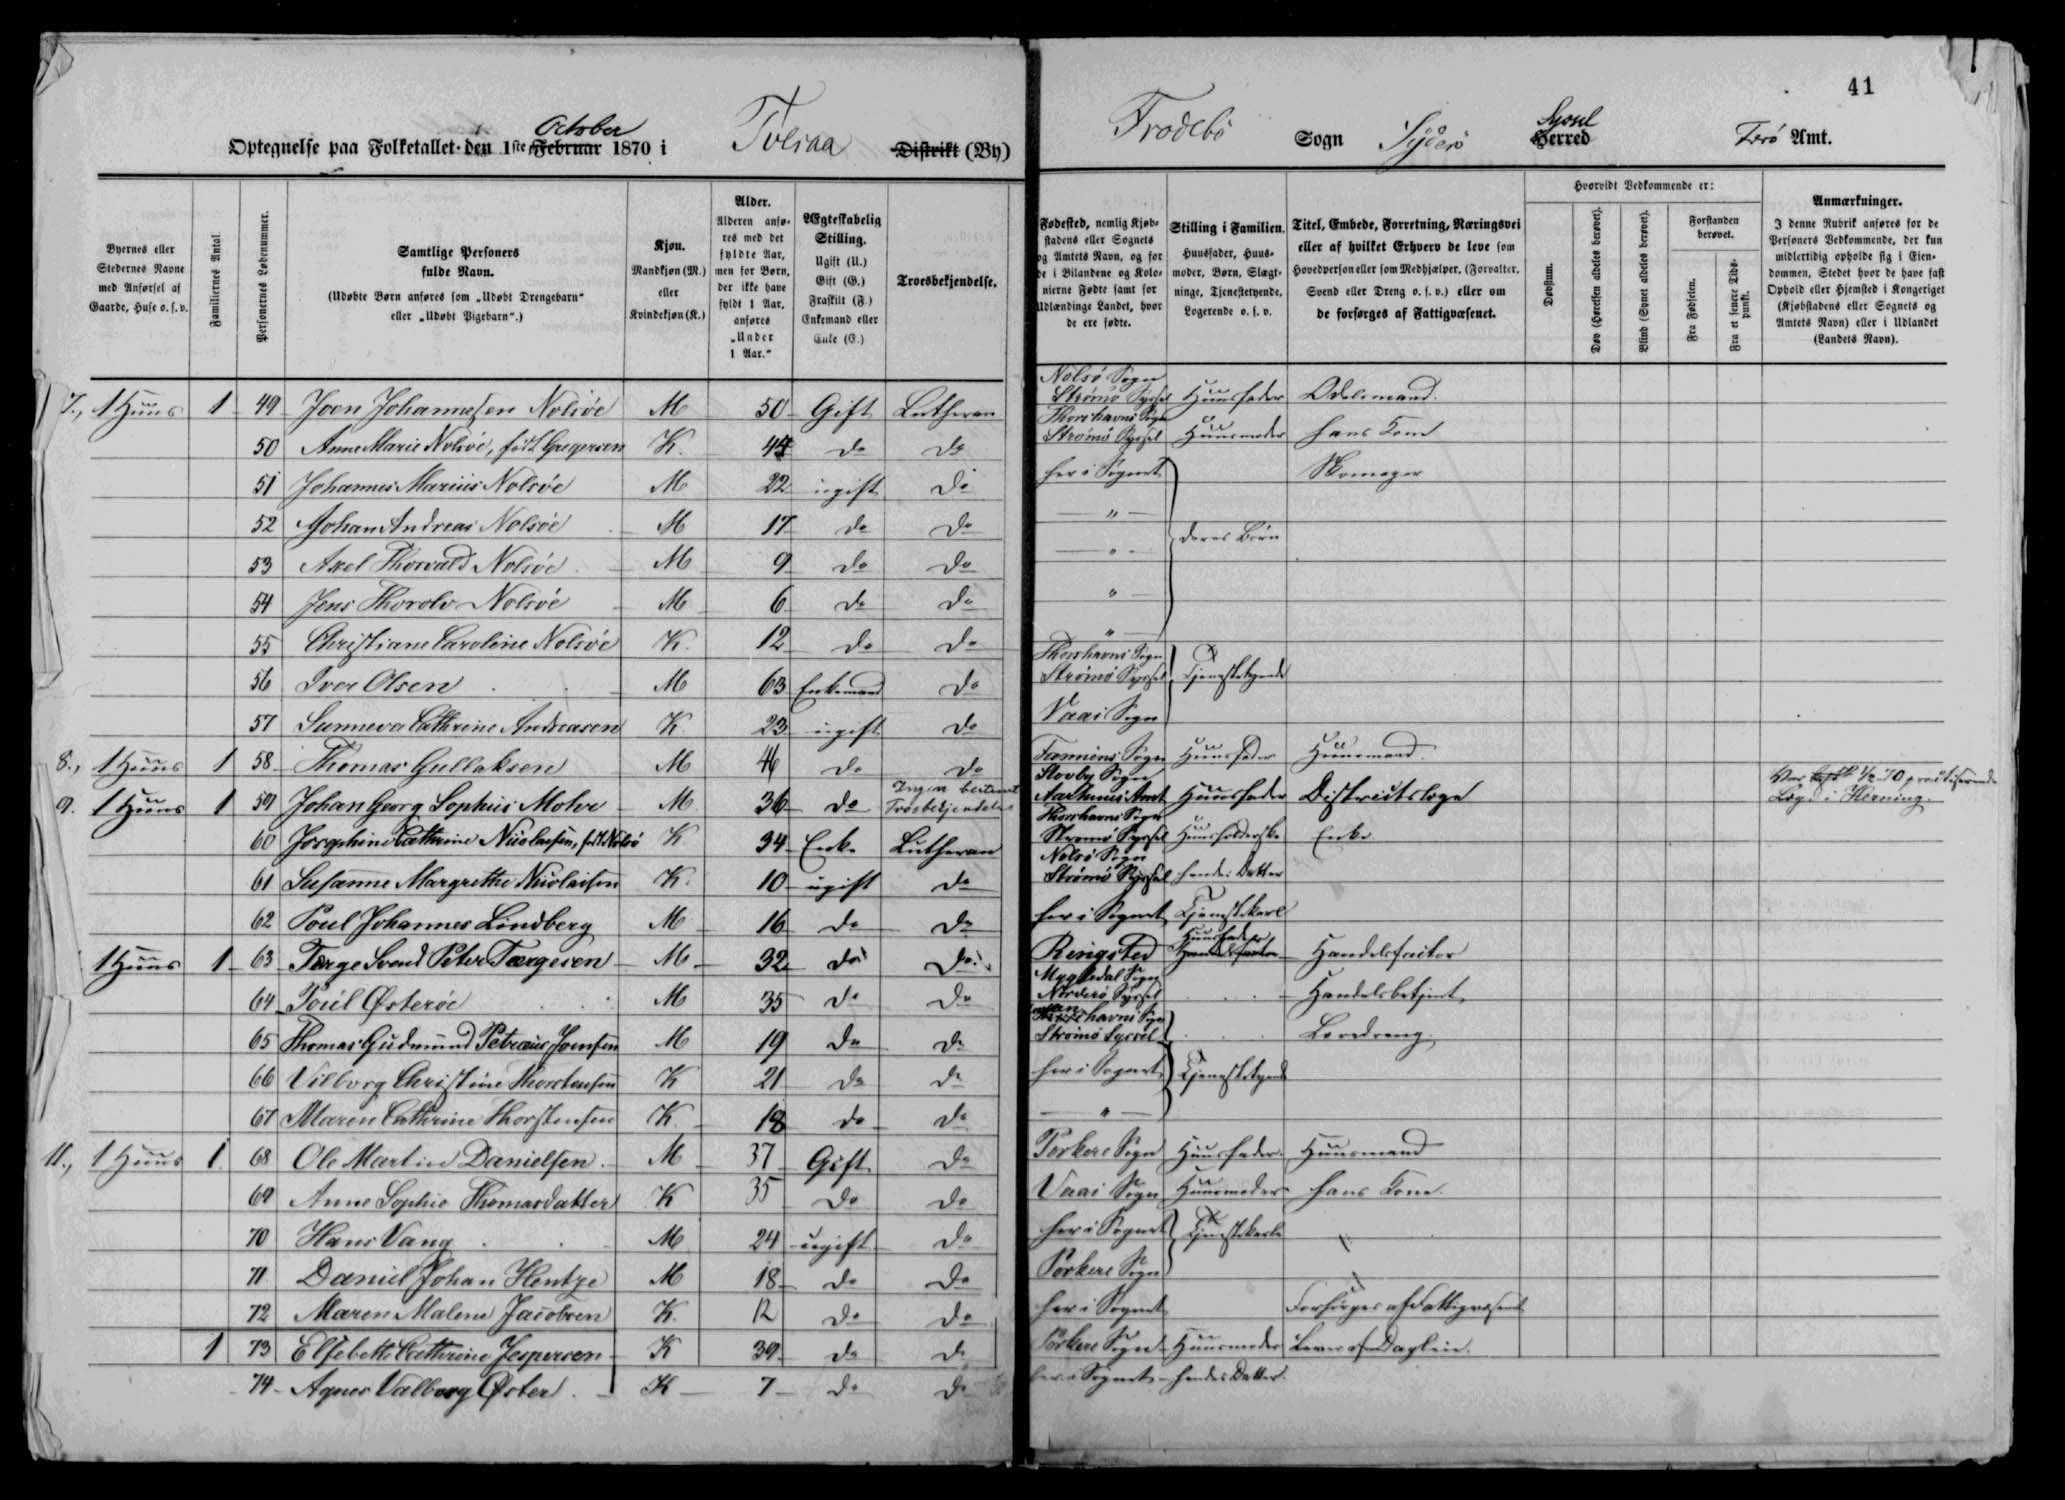 41
October
Optegnelse paa Folketallet den 1ste Februar 1870 i Tveraa Distrikt (By)
Frodebö Sogn Syderö Syssel Herred Færö Amt.
Byernes eller Stedernes Navne med Anførsel af Gaarde, Huse o. s. v.
Familiernes Antal.
Personernes Løbenummer.
Samtlige Personers fulde Navn.
(Udøbte Børn anføres som „Udøbt Drengebarn“ eller „Udøbt Pigebarn“.)
Kjøn. Mandkjøn (M.) eller Kvindekjøn (K.)
Alder. Alderen anføres med det fyldte Aar, men for Børn, der ikke have fyldt 1 Aar, anføres „Under 1 Aar.“
Ægteskabelig Stilling. Ugift (U.) Gift (G.) Fraskilt (F.) Enkemand eller Enke (E.)
Troesbekjendelse.
Fødested, nemlig Kjøbstadens eller Sognets og Amtets Navn, og for de i Bilandene og Kolonierne Fødte samt for Udlændinge Landet, hvor de ere fødte.
Stilling i Familien. Huusfader, Huusmoder, Børn, Slægtninge, Tjenestetyende, Logerende o. s. v.
Titel, Embede, Forretning, Næringsvei eller af hvilket Erhverv de leve som Hovedperson eller som Medhjælper, (Forvalter, Svend eller Dreng o. s. v.) eller om de forsørges af Fattigvæsenet.
Hvorvidt Vedkommende er:
Døvstum.
Døv (Hørelsen aldeles berøvet).
Blind (Synet aldeles berøvet).
Forstanden berøvet.
Fra Fødselen.
Fra et senere Tidspunkt.
Anmærkninger. I denne Rubrik anføres for de Personers Vedkommende, der kun midlertidig opholde sig i Eiendommen, Stedet hvor de have fast Ophold eller Hjemsted i Kongeriget (Kjøbstadens eller Sognets og Amtets Navn) eller i Udlandet (Landets Navn).
7., 1 Huus 1 49 Joen Johannesen Nolsöe M 50 Gift Lutheran Nolsö Sogn Strömö Syssel Huusfader Odelsmand.
50 Anne Marie Nolsöe, född Gregersen K. 44 do do Thorshavns Sogn Strömö Syssel Huusmoder hans Kone
51 Johannes Marius Nolsöe M 22 ugift do her i Sognet Skomager
52 Johan Andreas Nolsöe M 17 do do — " — deres Börn
53 Axel Thorvald Nolsöe M 9 do do — " —
54 Jens Thorolv Nolsöe M 6 do do " —
55 Christiane Caroline Nolsöe K. 12 do do " —
56 Iver Olsen M 63 Enkemand do Thorshavns Sogn Strömö Syssel Tjenestetyende
57 Sunneva Cathrine Andreasen K. 23 ugift do Vaas Sogn
8., 1 Huus 1 58 Thomas Gullaksen M do do Famiens Sogn Huusfader Huusmand.
9. 1 Huus 1 59 Johan Georg Sophus Mohr M 36 do Ingen bestemt Troesbekjendelse Skovby Sogn Aarhuus Amt Huusfader Districtslæge Var 1/2 70 practiserende Læge i Herning.
60 Josephine Cathrine Nicolaisen, född Nolsö K 34 Enke Lutheran Thorshavns Sogn Strömö Syssel Huusholderske Enke
61 Susanne Margrethe Nicolaisen K. 10 ugift do Nolsö Sogn Strömö Syssel hendes Datter
62 Poul Johannes Lindberg M 16 do do her i Sognet Tjenestekarl
1 Huus 1 63 Tærge Svend Peter Tærgesen M 32 do do Ringsted Huusfader Handelsfactor
64 Poul Østeröe M 35 do do Mygledal Sogn Norderö Syssel Handelsbetjent
65 Thomas Gudmund Petræus Joensen M 19 do do Thorshavns Sogn Strömö Syssel Læredreng
66 Vilborg Christine Thorstensen K 21 do do her i Sognet Tjenestetyende
67 Maren Cathrine Thorstensen K. 18 do do — " —
11., 1 Huus 1. 68 Ole Martin Danielsen M 37 Gift do Porkere Sogn Huusfader Huusmand
69 Anne Sophie Thomasdatter K 35 do do Vaas Sogn Huusmoder hans Kone.
70 Hans Vang M 24 ugift do her i Sognet Tjenestekarle
71 Daniel Johan Hentze M 18 do do Porkere Sogn
72 Maren Malene Jacobsen K. 12 do do her i Sognet Forsörges af Fattigvæsenet
1 73 Elsebeth Cathrine Jespersen K 39 do do Porkere Sogn Huusmoder Lever af Daglön.
74 Agnes Valborg Øster K 7 do do her i Sognet hendes Datter.